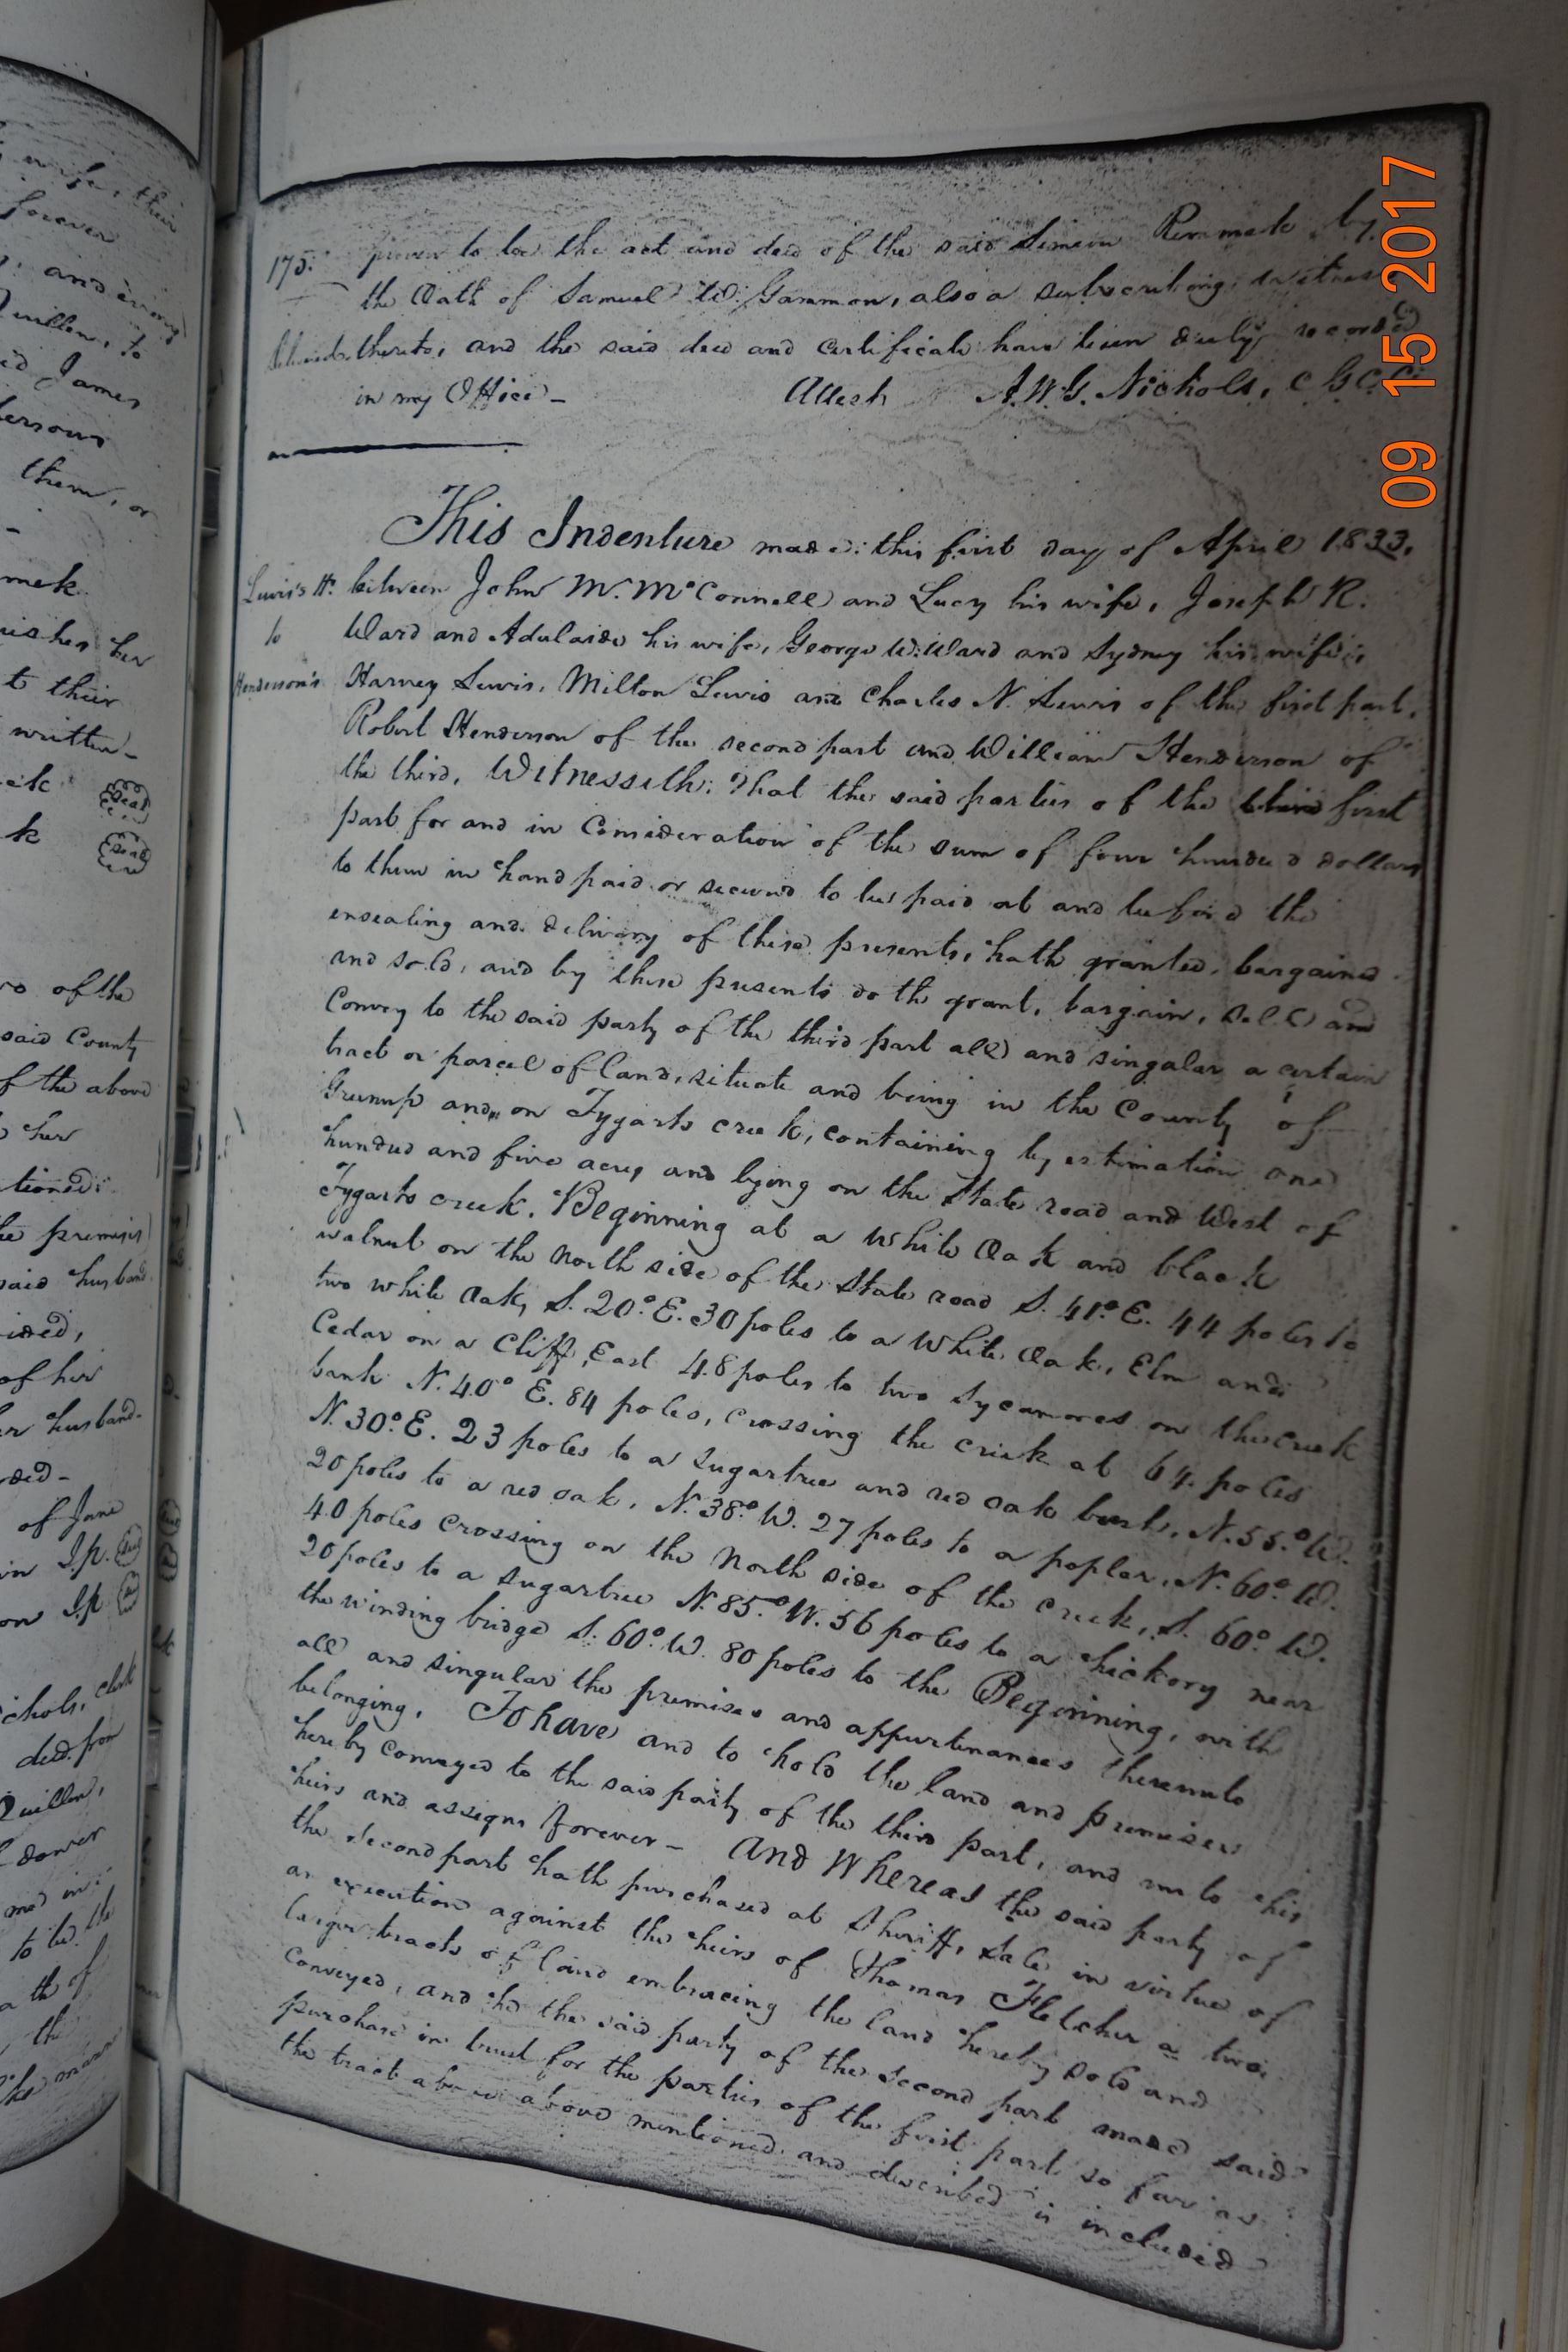 175. proven to be the act and deed of the said Simeon by
the Oath of Samuel W. Gammon, also a subscribing witness
thereto, and the said deed and certificate have been duly recorded
in my Office - Attest A.W.G. Nichols, C G C C
This Indenture made this first day of April 1833,
Lewis's Hs. between John M. McConnell and Lucy his wife, Joseph R.
to Ward and Adulaide his wife, George W. Ward and Sydney his wife,
Henderson's Harvey Lewis, Milton Lewis and Charles N. Lewis of the first part,
Robert Henderson of the second part and William Henderson of
the third, Witnesseth: That the said parties of the third first
part for and in Consideration of the sum of four hundred dollars
to them in hand paid or secured to be paid at and before the
ensealing and delivery of these presents, hath granted, bargained
and sold, and by these presents doth grant, bargain, sell and
Convey to the said party of the third part all and singular a certain
tract or parcel of land, situate and being in the County of
Greenup and on Tygarts creek, containing by estimation one
hundred and five acres and lying on the State road and West of
Tygarts creek. Beginning at a White Oak and black
walnut on the North side of the State road S. 41° E. 44 poles to
two white Oaks, S. 20° E. 30 poles to a White Oak, Elm and
Cedar on a Cliff, East 48 poles to two Sycamores on the creek
bank N. 40° E. 84 poles, crossing the creek at 64 poles
N. 30° E. 23 poles to a Sugartree and red oak bush, N. 55° W.
20 poles to a red oak, N. 38° W. 27 poles to a poplar, N. 60° W.
40 poles crossing on the North side of the creek, S. 60° W.
20 poles to a sugartree N. 85° W. 56 poles to a hickory near
the winding bridge S. 60° W. 80 poles to the Beginning, with
all and singular the premises and appurtenances thereunto
belonging, To have and to hold the land and premises
hereby conveyed to the said party of the third part, and unto his
heirs and assigns forever - And Whereas the said party of
the second part hath purchased at Sheriffs sale in virtue of
an execution against the heirs of Thomas Fletcher a two
larger tracts of land embracing the land hereby sold and
conveyed, and the said party of the second part made said
purchase in trust for the parties of the first part so far as
the tract above above mentioned and described is included
09 15 2017
wife, their
forever
Quillen, to
James
persons
them, or
written -
Seal
Seal
of the
said County
of the above
her
tioned
the premises
said husband
of her
her husband
of Jane
J.p.
J.p.
Nichols, Clerk
deed from
Quillen,
dower